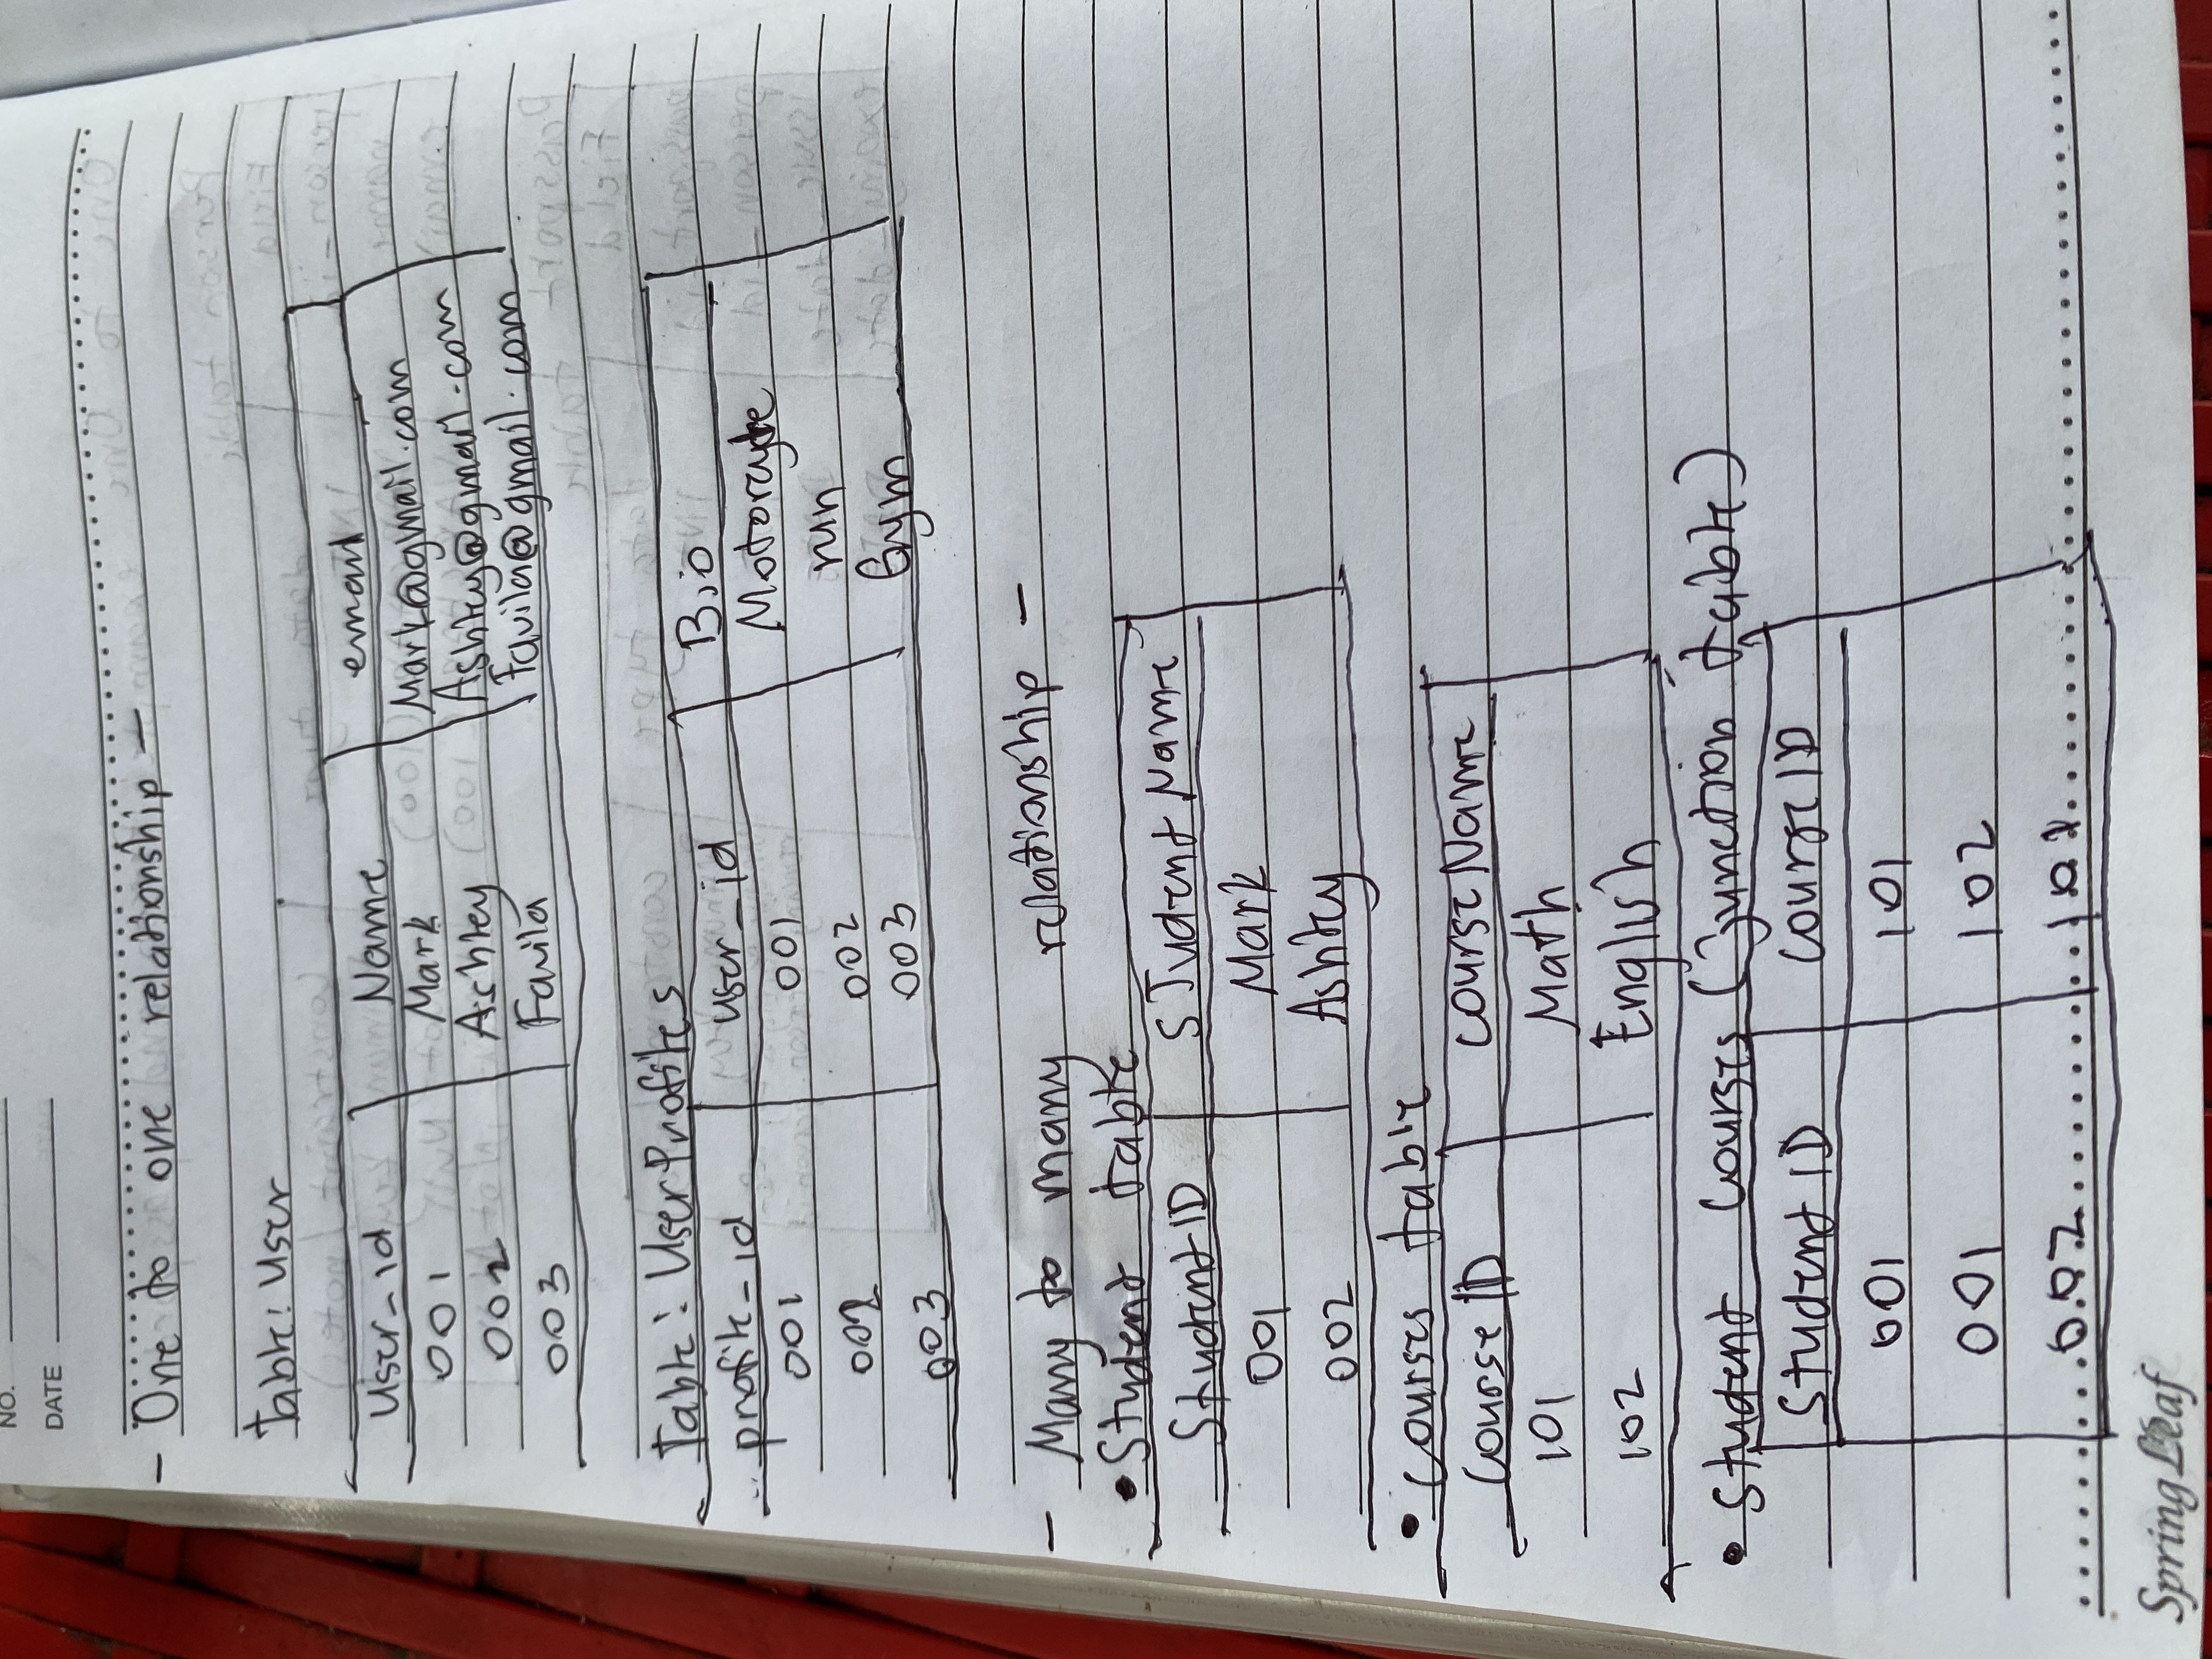 NO.
DATE
- One to one relationship -
Table: User
User_id Name email
001 Mark Mark@gmail.com
002 Ashley Ashley@gmail.com
003 Favila Favila@gmail.com
Table: UserProfiles
profile_id user_id Bio
001 001 Motorcycle
002 002 run
003 003 Gym
- Many to many relationship -
• Student table
StudentID STudentName
001 Mark
002 Ashley
• Courses table
CourseID CourseName
101 Math
102 English
• Student Courses (Junction table)
StudentID CourseID
001 101
001 102
002
Spring Leaf